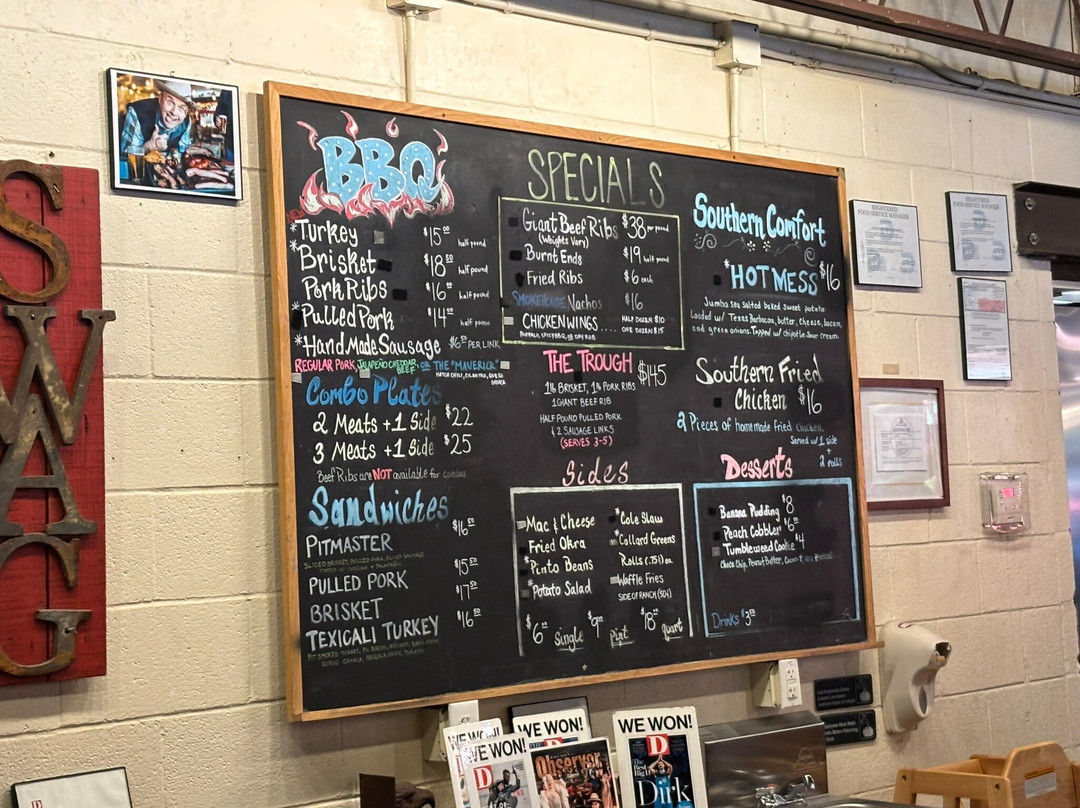 SWAG
BBQ
*Turkey $15.00 half pound
*Brisket $18.50 half pound
Pork Ribs $16.00 half pound
*Pulled Pork $14.00 half pound
*Hand Made Sausage $6.25 PER LINK
REGULAR PORK, JALAPEÑO CHEDDAR BEEF, or THE "MAVERICK"
HATCH CHILI, CILANTRO, QUESO OAXACA
Combo Plates
2 Meats +1 Side $22
3 Meats +1 Side $25
Beef Ribs are NOT available for combos
Sandwiches
PITMASTER $16.50
SLICED BRISKET, PULLED PORK, SLICED SAUSAGE
PULLED PORK $15.50
BRISKET $17.50
TEXICALI TURKEY $16.50
SPECIALS
Giant Beef Ribs $38 per pound
(Weights Vary)
Burnt Ends $19 half pound
Fried Ribs $6 each
SMOKEHOUSE Nachos $16
CHICKEN WINGS.... HALF DOZEN $10
ONE DOZEN $15
BUFFALO, SPICY BBQ, OR DRY RUB
THE TROUGH $145
1 lb BRISKET, 1 lb PORK RIBS
1 GIANT BEEF RIB
HALF POUND PULLED PORK
& 2 SAUSAGE LINKS
(SERVES 3-5)
Sides
Mac & Cheese
Fried Okra
*Pinto Beans
*Potato Salad
*Cole Slaw
*Collard Greens
Rolls (.75¢) ea.
Waffle Fries
SIDE OF RANCH (50¢)
$6 Single $9 Pint $18 Quart
Southern Comfort
*HOT MESS $16
Jumbo sea salted baked sweet potato
Loaded w/ Texas Barbacoa, butter, cheese, bacon,
and green onions. Topped w/ chipotle sour cream.
Southern Fried
Chicken $16
2 Pieces of homemade fried chicken
Served w/ 1 side
+
2 rolls
Desserts
Banana Pudding $8
Peach Cobbler $6
Tumbleweed Cookie $4
Choco Chip, Peanut Butter, Coconut,
Drinks $3.50
REGISTERED
FOOD SERVICE MANAGER
REGISTERED
FOOD SERVICE MANAGER
WE WON!
WE WON!
D
WE WON!
Observer
WE WON!
D
The Best of Big D
Dirk